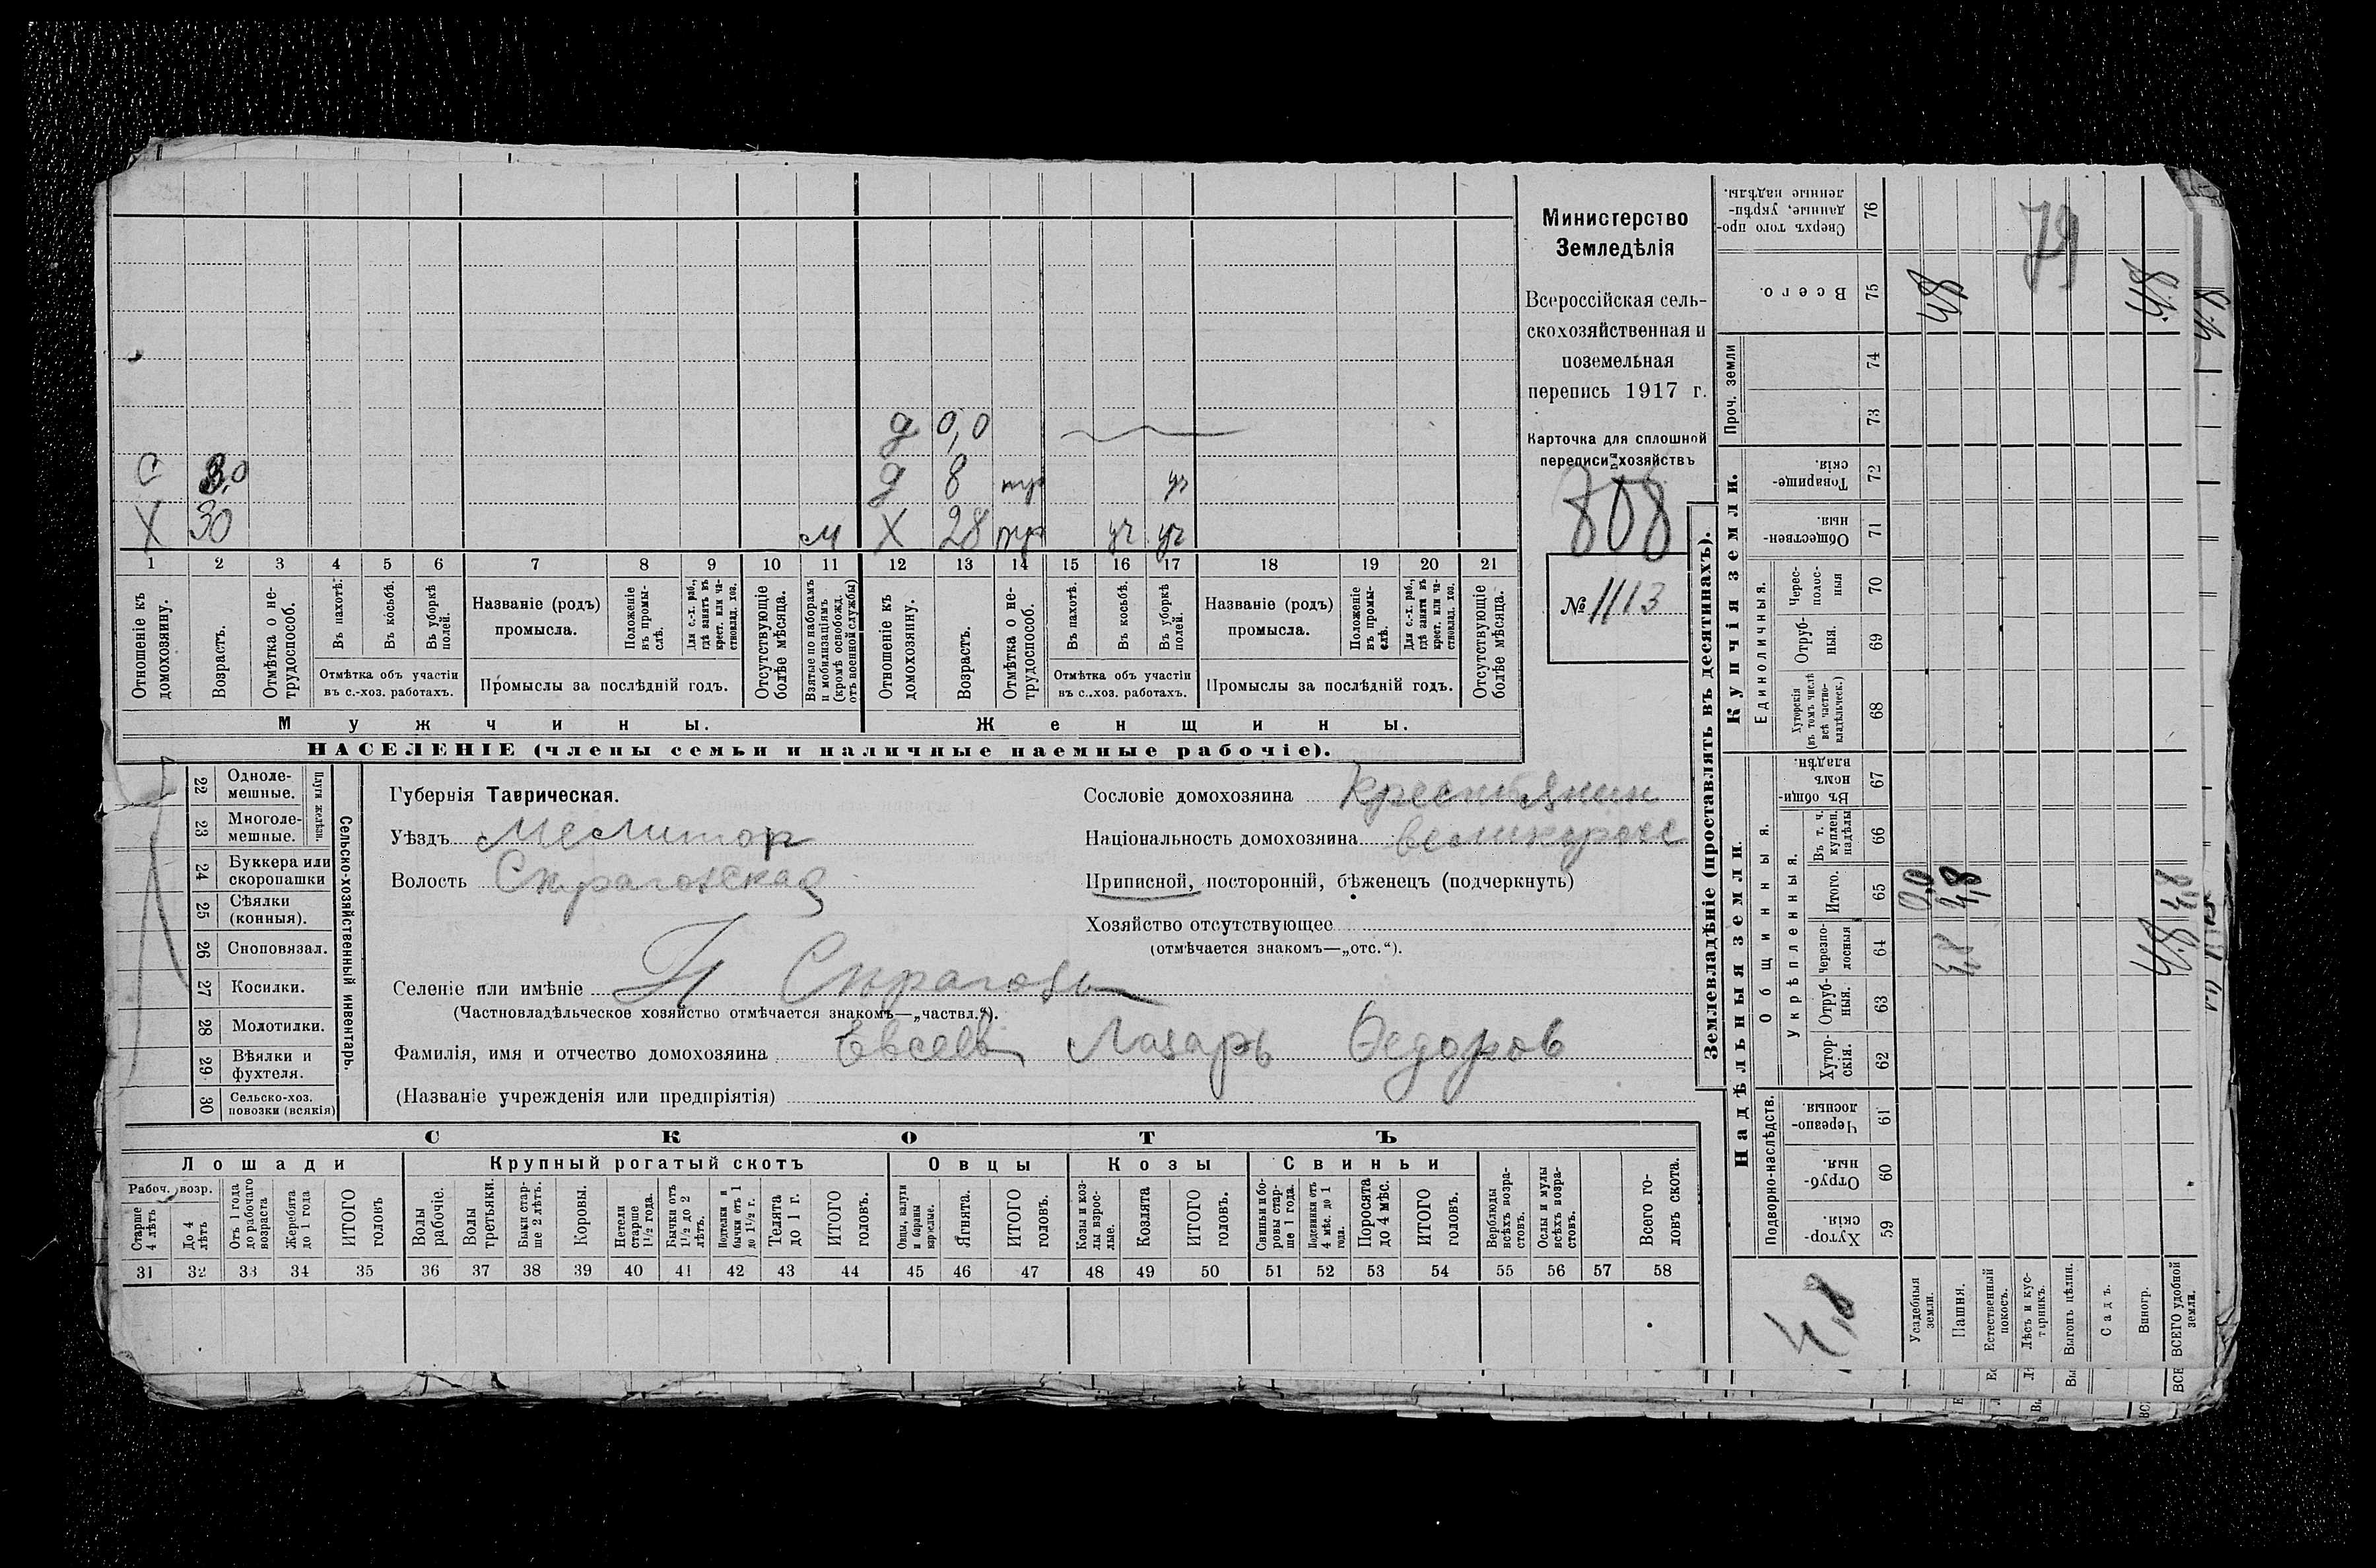 Министерство
Земледѣлія
Всероссійская сель-
скохозяйственная и
поземельная
перепись 1917 г.
Карточка для сплошной
переписи хозяйствъ
808
№ 1113
д 0,0
С 3,0 д 8 нтр уч
Х 30 м Х 28 нтр уч уч
1 2 3 4 5 6 7 8 9 10 11 12 13 14 15 16 17 18 19 20 21
Отношеніе къ домохозяину.
Возрастъ.
Отмѣтка о не-трудоспособ.
Въ пахотѣ.
Въ косьбѣ.
Въ уборкѣ полей.
Отмѣтка объ участіи
въ с.-хоз. работахъ.
Названіе (родъ)
промысла.
Положеніе въ промы-слѣ.
Для с.-х. раб., гдѣ занятъ въ крест. или ча-стновлад. хоз.
Промыслы за послѣдній годъ.
Отсутствующіе болѣе мѣсяца.
Взятые по наборамъ и мобилизаціямъ (кромѣ освобожд. отъ военной службы)
Отношеніе къ домохозяину.
Возрастъ.
Отмѣтка о не-трудоспособ.
Въ пахотѣ.
Въ косьбѣ.
Въ уборкѣ полей.
Отмѣтка объ участіи
въ с.-хоз. работахъ.
Названіе (родъ)
промысла.
Положеніе въ промы-слѣ.
Для с.-х. раб., гдѣ занята въ крест. или ча-стновлад. хоз.
Промыслы за послѣдній годъ.
Отсутствующіе болѣе мѣсяца.
Мужчины. Женщины.
НАСЕЛЕНІЕ (члены семьи и наличные наемные рабочіе).
Сельско-хозяйственный инвентарь.
Плуги желѣзн.
22 Одноле-мешные.
23 Многоле-мешные.
24 Буккера или скоропашки
25 Сѣялки (конныя).
26 Сноповязал.
27 Косилки.
28 Молотилки.
29 Вѣялки и фухтеля.
30 Сельско-хоз. повозки (всякія)
Губернія Таврическая.
Уѣздъ Мелитоп
Волость
Сословіе домохозяина Крестьянин
Національность домохозяина великоросс
Приписной, посторонній, бѣженецъ (подчеркнуть)
Хозяйство отсутствующее
(отмѣчается знакомъ—„отс.“).
Селеніе или имѣніе
(Частновладѣльческое хозяйство отмѣчается знакомъ—„частвл.“).
Фамилія, имя и отчество домохозяина Евсеев Лазарь Федоров
(Названіе учрежденія или предпріятія)
СКОТЪ
Лошади Крупный рогатый скотъ Овцы Козы Свиньи
Рабоч. возр.
Старше 4 лѣтъ
До 4 лѣтъ
Отъ 1 года до рабочаго возраста
Жеребята до 1 года
ИТОГО головъ
Волы рабочіе.
Волы третьяки.
Быки стар-ше 2 лѣтъ.
Коровы.
Нетели старше 1½ года.
Бычки отъ 1½ до 2 лѣтъ.
Подтелки и бычки отъ 1 до 1½ г.
Телята до 1 г.
ИТОГО головъ.
Овцы, валухи и бараны взрослые.
Ягнята.
ИТОГО головъ.
Козы и коз-лы взрос-лые.
Козлята
ИТОГО головъ.
Свиньи и бо-ровы стар-ше 1 года.
Подсвинки отъ 4 мѣс. до 1 года.
Поросята до 4 мѣс.
ИТОГО головъ.
Верблюды всѣхъ возра-стовъ.
Ослы и мулы всѣхъ возра-стовъ.
Всего го-ловъ скота.
31 32 33 34 35 36 37 38 39 40 41 42 43 44 45 46 47 48 49 50 51 52 53 54 55 56 57 58
Землевладѣніе (проставлять въ десятинахъ).
Надѣльныя земли.
Купчія земли.
Проч. земли
Подворно-наслѣдств.
Общинныя.
Укрѣпленныя.
Единоличныя.
Хутор-скія. 59
Отруб-ныя. 60
Черезпо-лосныя. 61
Хутор-скія. 62
Отруб-ныя. 63
Черезпо-лосныя 64
Итого. 65
Въ т. ч. куплен. надѣлы 66
Въ общи-номъ владѣн. 67
Хуторскія (въ томъ числѣ всѣ частно-владѣльческ.) 68
Отруб-ныя. 69
Черес-полос-ныя 70
Обществен-ныя. 71
Товарище-скія. 72
73
74
Всего. 75
Сверхъ того про-данные, укрѣп-ленные надѣлы. 76
Усадебныя земли. 0,0
Пашня. 4,8 4,8 4,8
Естественный покосъ.
Лѣсъ и кус-тарникъ.
Выгонъ цѣлин.
Садъ.
Виногр.
ВСЕГО удобной земли. 4,8 4,8 4,8
79
4,8